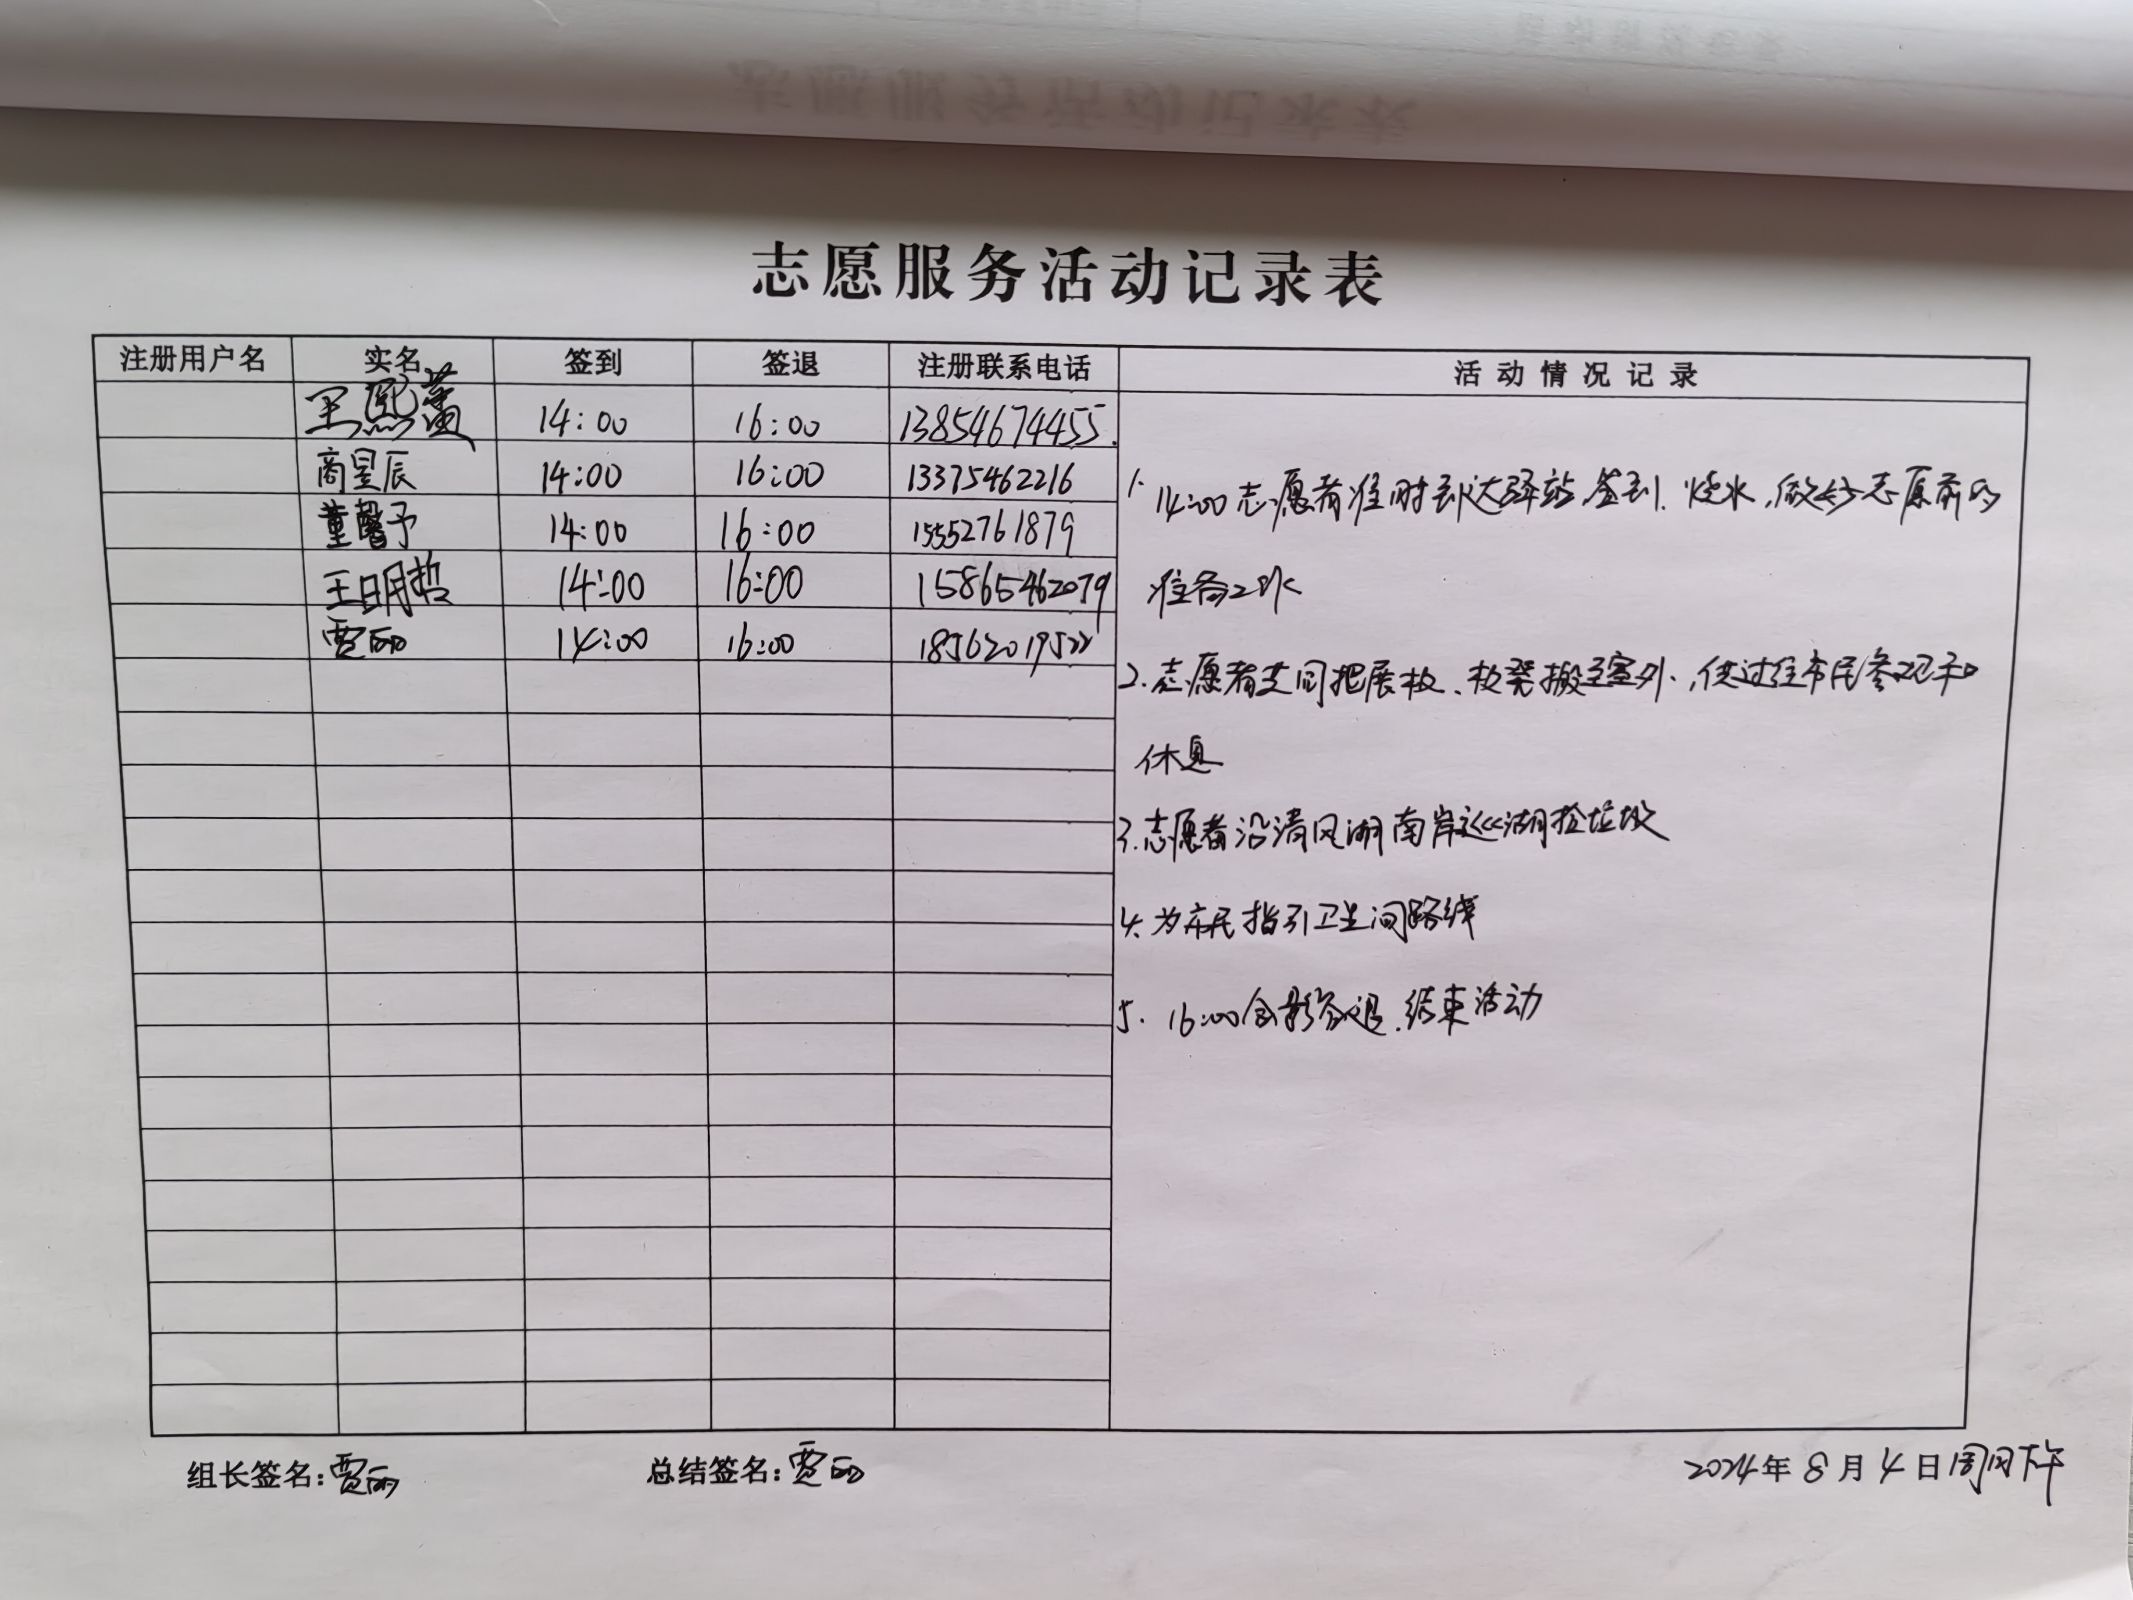 志愿服务活动记录表
注册用户名 实名 签到 签退 注册联系电话 活动情况记录
王熙 14:00 16:00 13854674455
商昱辰 14:00 16:00 13375462216
董馨予 14:00 16:00 15552761879
王明哲 14:00 16:00 15865462079
贾丽 14:00 16:00 18562019522
1. 14:00志愿者准时到达驿站,签到、烧水,做好志愿前的
准备工作
2.志愿者共同把展板、板凳搬至室外,供过往市民参观和
休息
3.志愿者沿清风湖南岸巡湖捡垃圾
4.为市民指引卫生间路线
5. 16:00合影签退,结束活动
组长签名:贾丽 总结签名:贾丽 2024年8月4日周日下午